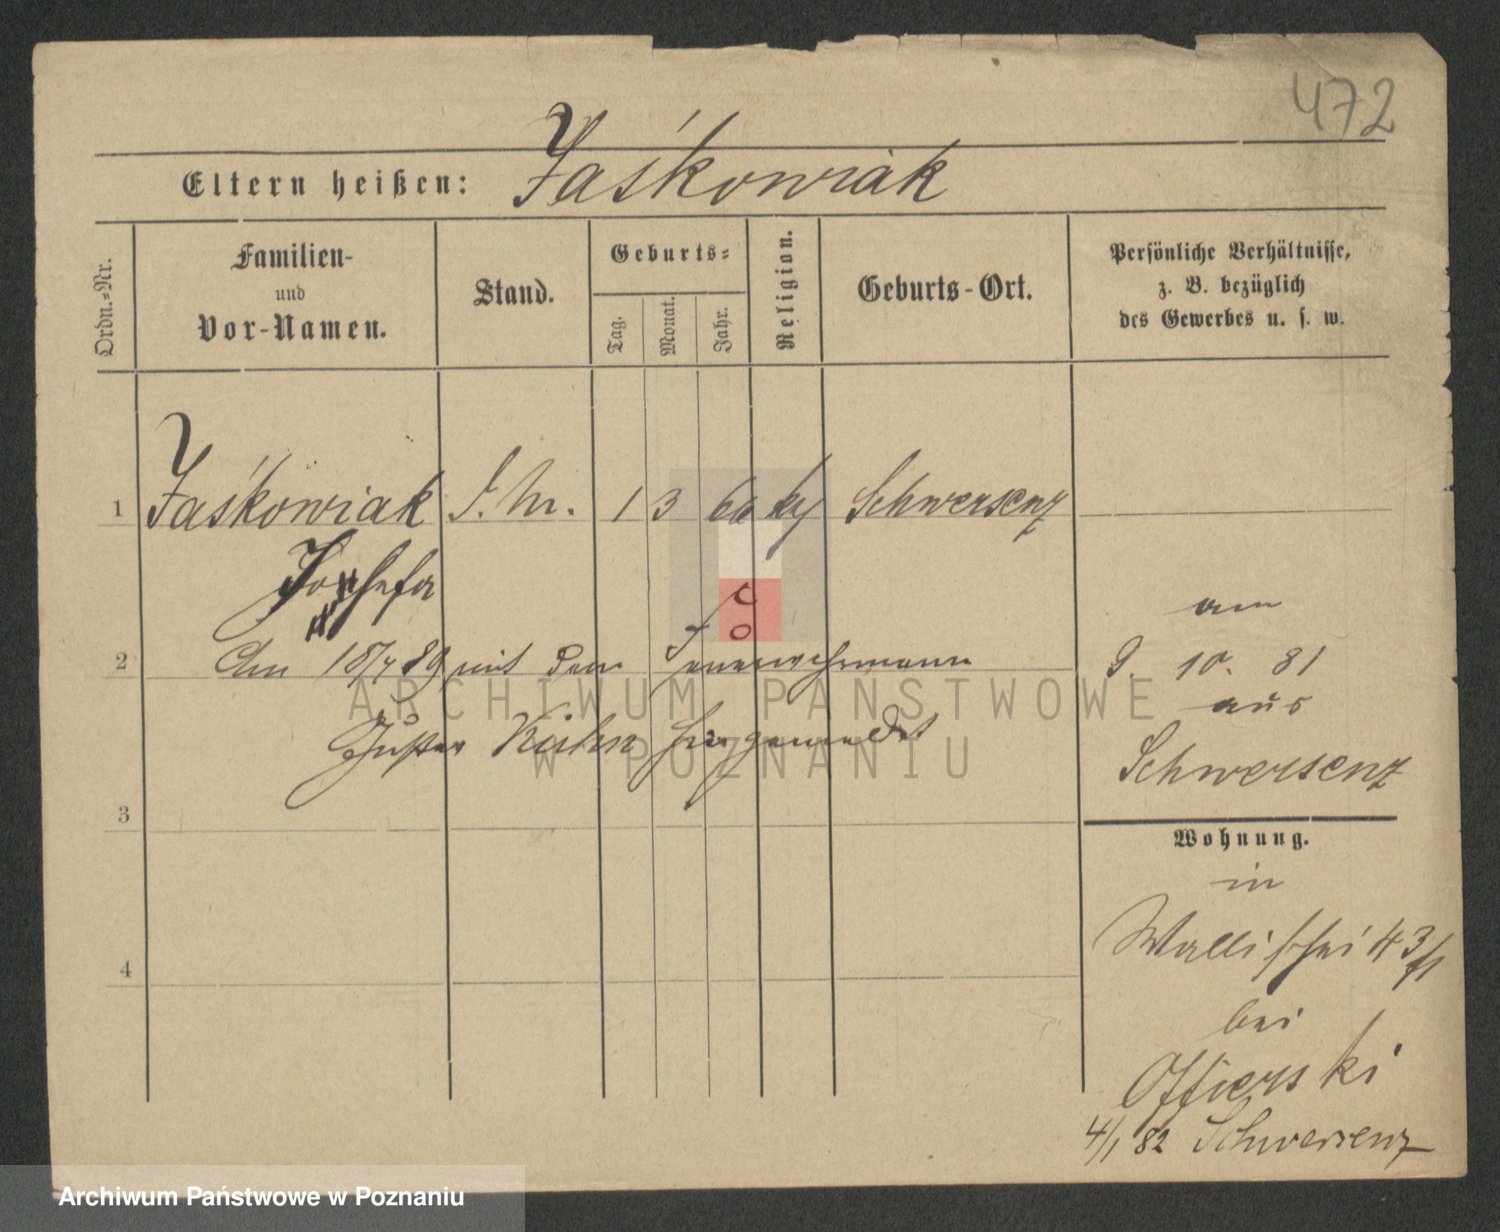 472
Eltern heißen: Jaśkowiak
Ordn.-Nr.
Familien-
und
Vor-Namen.
Stand.
Geburts-
Tag.
Monat.
Jahr.
Religion.
Geburts-Ort.
Persönliche Verhältnisse,
z. B. bezüglich
des Gewerbes u. s. w.
1 Jaśkowiak 1 3 60 Schwersenz
Josefa
am
2 Am 18/7 89 mit dem Feuerwehrmann
9. 10. 81
aus
Gustav Kuhn
Schwersenz
3
Wohnung.
in
Wallischei 43/1
4
bei
Offierski
4/1 82 Schwersenz
ARCHIWUM PAŃSTWOWE
W POZNANIU
Archiwum Państwowe w Poznaniu